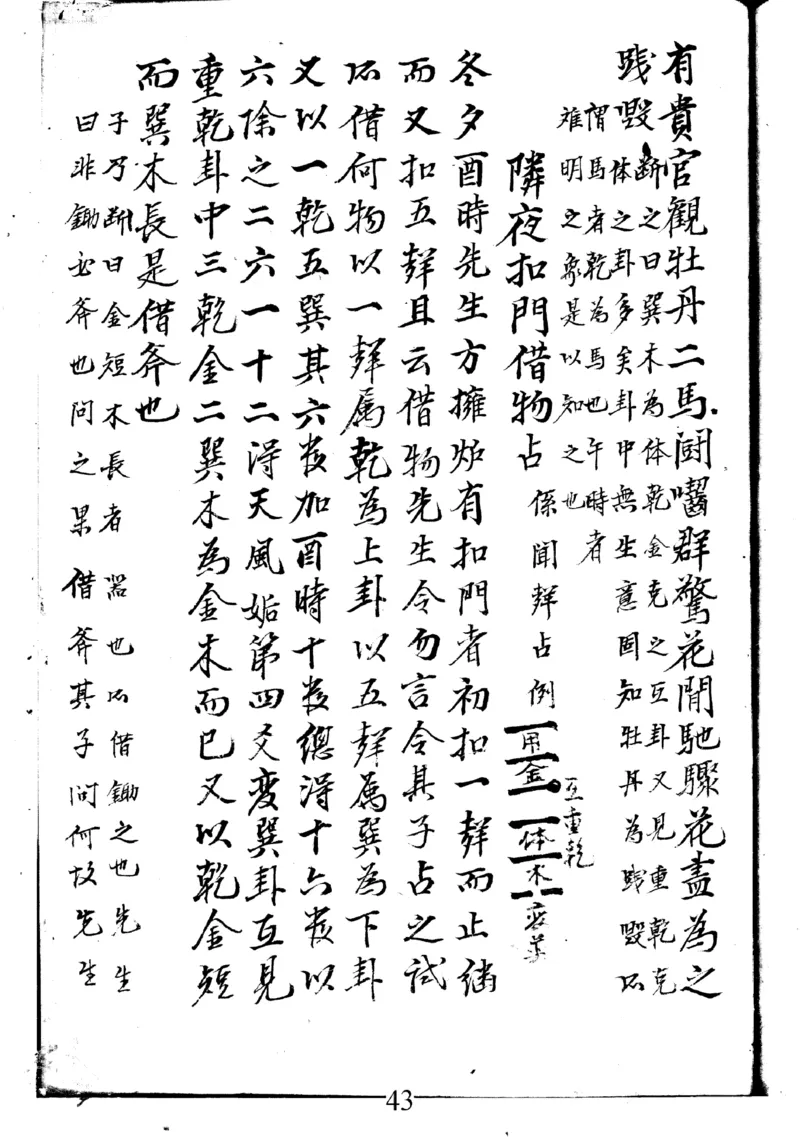 有貴官觀牡丹二馬.鬪囓群驚花間馳驟花盡為之
践毀
断之曰巽木為体乾金克之互卦又見重乾克
体之卦多矣卦中無生意固知牡丹為践毀所
謂馬者乾為馬也午時者
难明之象是以知之也
隣夜扣門借物占 係聞聲占例 用金 体木 互重乾
冬夕酉時先生方擁炉有扣門者初扣一聲而止継
而又扣五聲且云借物先生令勿言令其子占之試
所借何物以一聲属乾為上卦以五聲属巽為下卦
又以一乾五巽其六数加酉時十数總得十六数以
六除之二六一十二得天風姤第四爻変巽卦互見
重乾卦中三乾金二巽木為金木而已又以乾金短
而巽木長是借斧也
子乃断曰金短木長者器也所借鋤之也先生
曰非鋤必斧也問之果借斧其子問何故先生
43